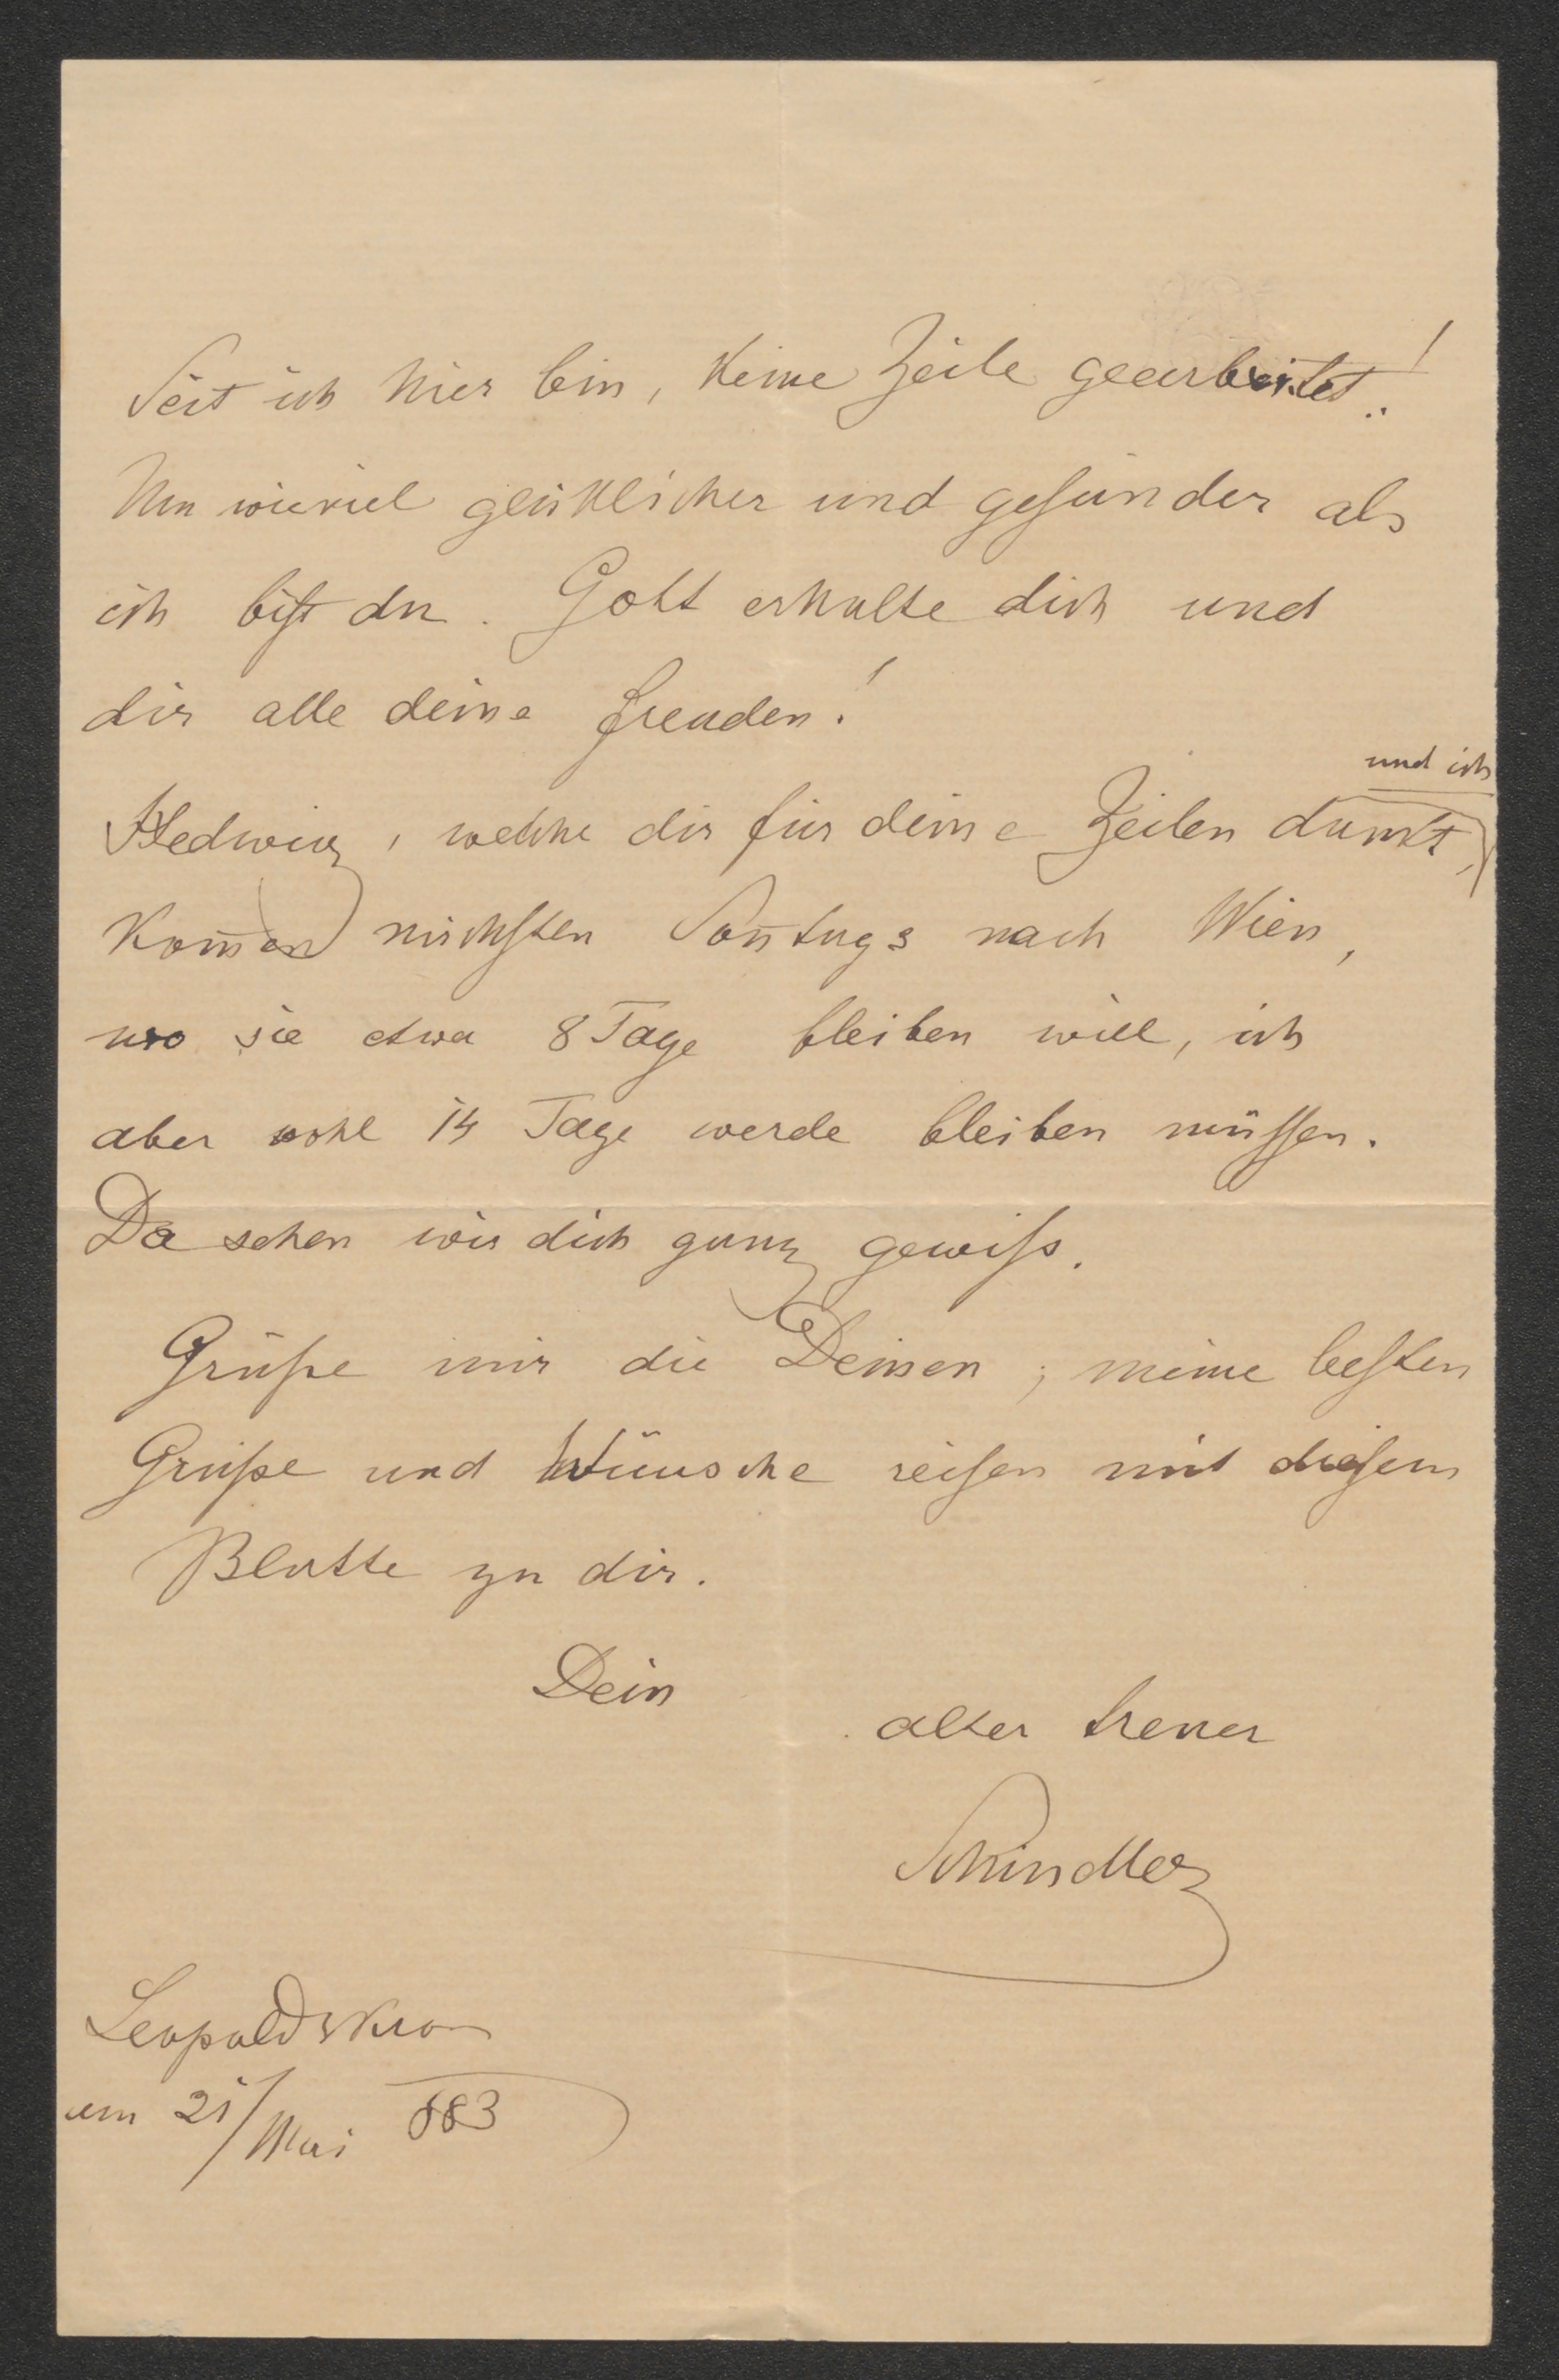 Seit ich hier bin, keine Zeile gearbeitet!
Um wieviel glücklicher und gesünder als
ich bist du. Gott erhalte dich und
dir alle deine Freuden!
und ich
Hedwig, welche dir für deine Zeilen dankt,
kom̄en nächsten Son̄tags nach Wien,
wo sie etwa 8 Tage bleiben will, ich
aber wohl 14 Tage werde bleiben müssen.
Da sehen wir dich ganz gewiss.
Grüße mir die Deinen; meine besten
Grüße und Wünsche reisen mit diesem
Blatte zu dir.
Dein
alter treuer
Schindler
Leopoldskron
am 21/Mai 883